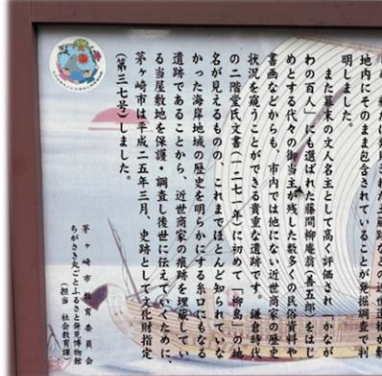 地内にそのまま包含されていることが発掘調査で判
明しました。
また幕末の文人名主として高く評価され「かなが
わの百人」にも選ばれた藤間柳庵翁（善五郎）をはじ
めとする代々の御当主が残した数多くの民俗資料や
書画などからも、市内では他にない近世商家の歴史
状況を窺うことができる貴重な遺跡です。鎌倉時代
の二階堂氏文書（一二七一年）に初めて「柳島」の地
名が見えるものの、これまでほとんど知られていな
かった海岸地域の歴史を明らかにする糸口にもなる
遺跡であることから、近世商家の痕跡を埋蔵してい
る当屋敷地を保護・調査し後世に伝えていくために、
茅ヶ崎市は平成二五年三月、史跡として文化財指定
（第三七号）しました。
茅ヶ崎市教育委員会
ちがさき丸ごとふるさと発見博物館
（担当 社会教育課）